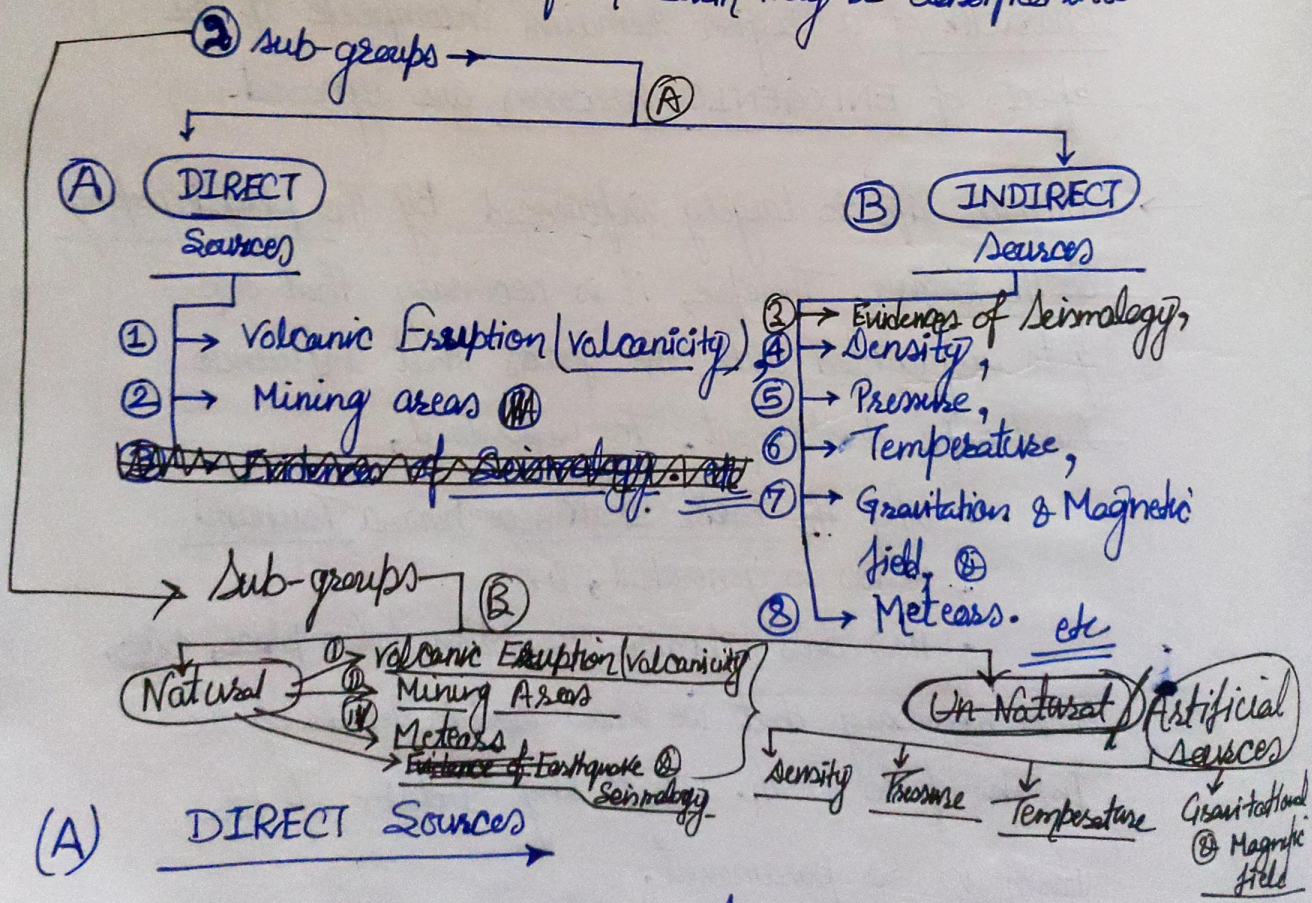 ② sub-groups →
Ⓐ
Ⓐ DIRECT
Sources
① → Volcanic Eruption (Volcanicity),
② → Mining areas
Evidence of Seismology. etc
Ⓑ INDIRECT
Sources
③ → Evidences of Seismology,
④ → Density,
⑤ → Pressure,
⑥ → Temperature,
⑦ → Gravitation & Magnetic
field, &
⑧ → Meteors. etc
Sub-groups
Ⓑ
Natural
① Volcanic Eruption (Volcanicity)
② Mining Areas
Meteors
Evidence of Earthquake &
Seismology
Un-Natural / Artificial
sources
Density
Pressure
Temperature
Gravitational
& Magnetic
field
(A) DIRECT Sources